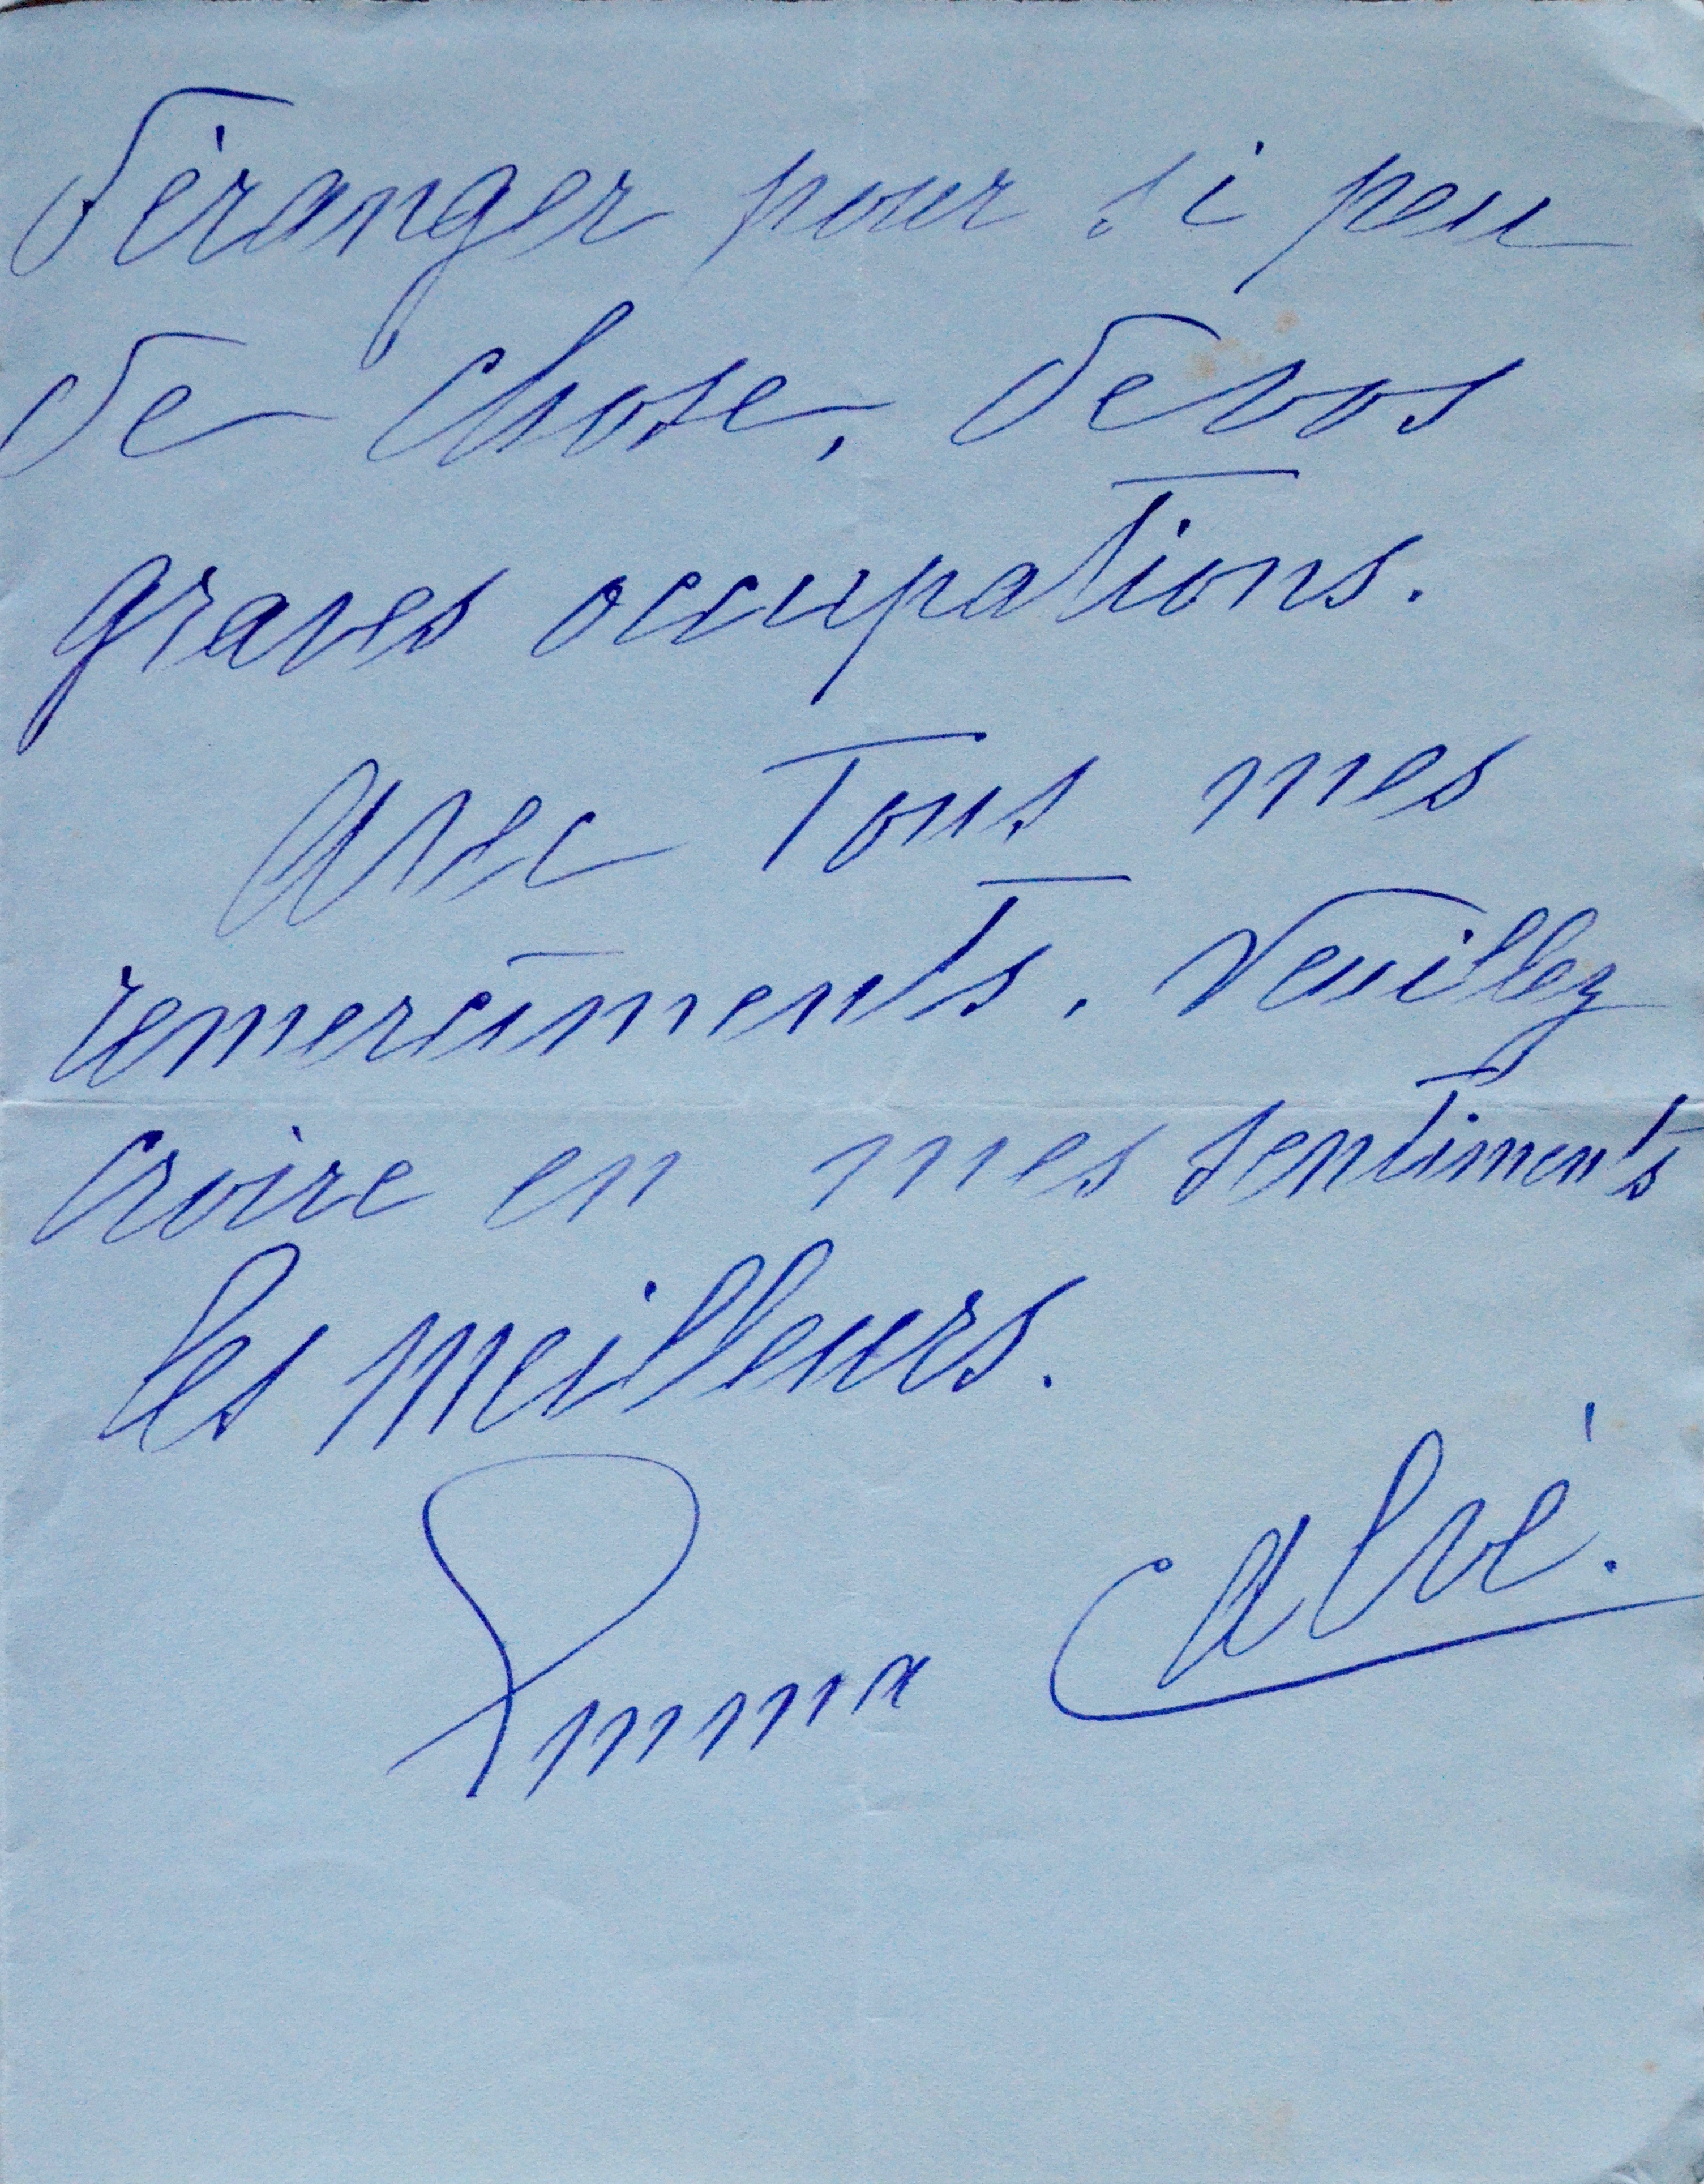 déranger pour si peu
de chose, de vos
graves occupations.
Avec Tous mes
remercîments. Veuillez
croire en mes sentiments
les meilleurs.
Emma Calvé.